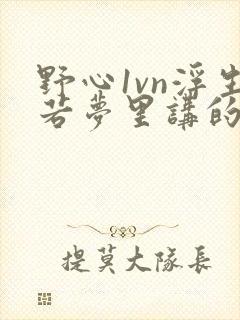 野心1vn浮生
若夢里講的
提莫大隊長